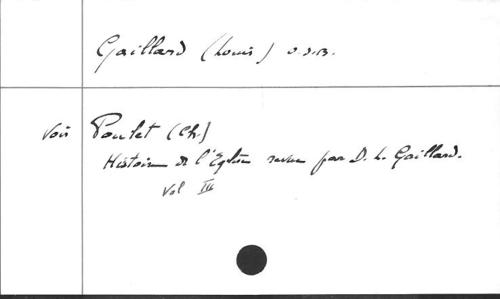 Gaillard (Louis) o.s.B.
Voir Poulet (Ch.)
Histoire de l'Eglise revue par D. L. Gaillard.
Vol III